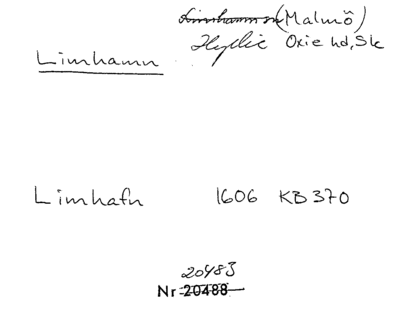 Limhamn sn (Malmö)
Limhamn Hyllie Oxie hd, Sk
Limhafn 1606 KB 370
20483
Nr 20488